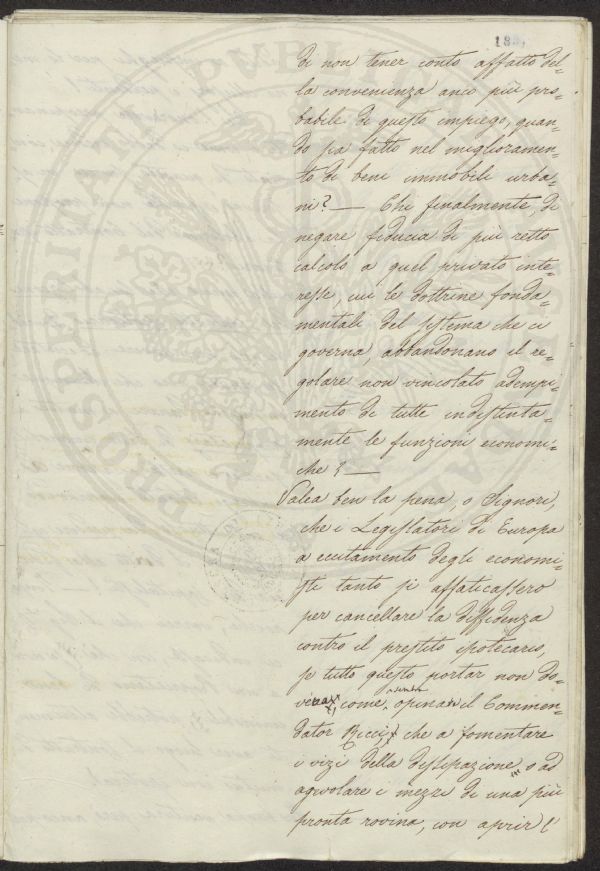 di non tener conto affatto del=
la convenienza anco più pro=
babile di questo impiego, quan=
do sia fatto nel miglioramen=
to di beni immobili urba=
ni? — Chi finalmente, di
negare fiducia di più retto
calcolo a quel privato inte=
resse, cui le dottrine fonda=
mentali del sistema che ci
governa, abbandonano il re=
golare non vincolato adempi=
mento di tutte indistinta=
mente le funzioni economi=
che? —
Valea ben la pena, o Signori,
che i Legislatori di Europa
a eccitamento degli economi=
sti tanto si affaticassero
per cancellare la diffidenza
contro il prestito ipotecario,
se tutto questo portar non do=
come opina il Commen=
dator Ricci, che a fomentare
i vizi della dissipazione, o ad
agevolare i mezzi di una più
pronta rovina, con aprir l'